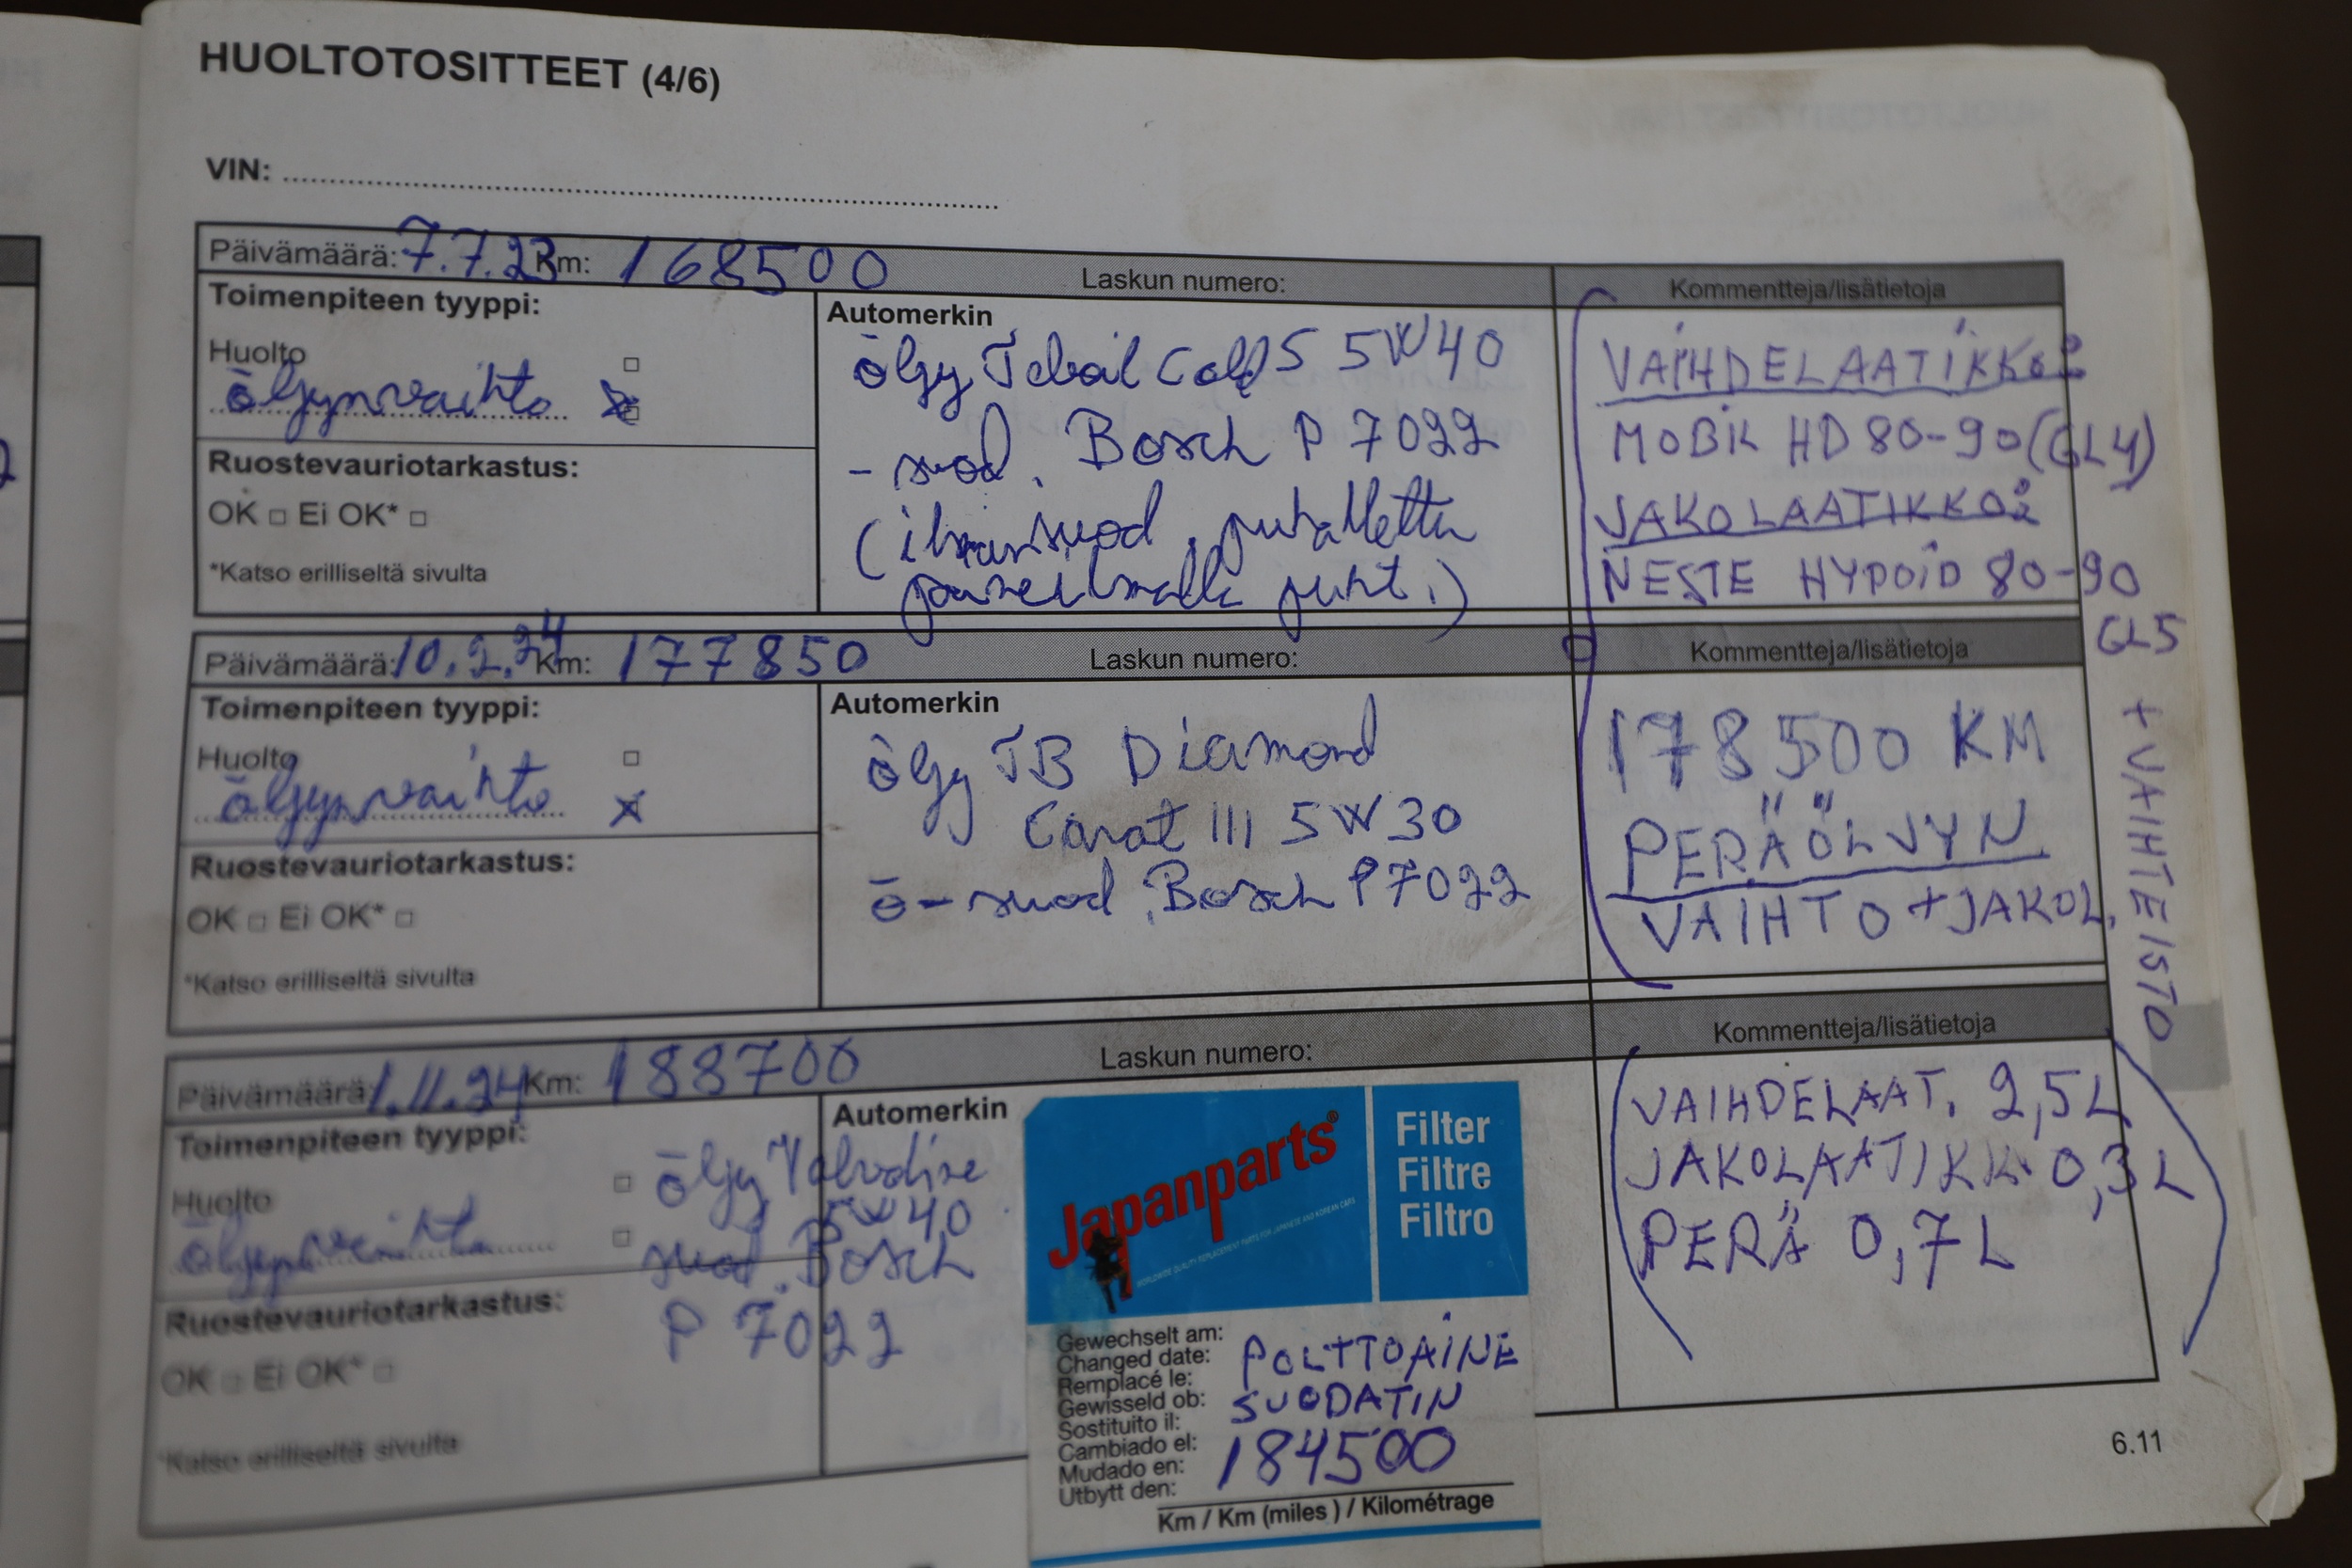 HUOLTOTOSITTEET (4/6)
VIN:
Päivämäärä: 7.7.23 Km: 168500 Laskun numero:
Kommentteja/lisätietoja
Toimenpiteen tyyppi:
Huolto
öljynvaihto
Ruostevauriotarkastus:
OK Ei OK*
*Katso erilliseltä sivulta
Automerkin
öljy Teboil Gold S 5W40
- suod. Bosch P 7022
(ilmansuod. puhallettu
paineilmalla puht.)
VAIHDELAATIKKO:
MOBIL HD 80-90 (GL4)
JAKOLAATIKKO:
NESTE HYPOID 80-90
GL5
+ VAIHTEISTO
Päivämäärä: 10.2.24 Km: 177850 Laskun numero:
Kommentteja/lisätietoja
Toimenpiteen tyyppi:
Huolto
öljynvaihto
Ruostevauriotarkastus:
OK Ei OK*
*Katso erilliseltä sivulta
Automerkin
öljy TB Diamond
Carat III 5W30
ö- suod. Bosch P7022
178500 KM
PERÄÖLJYN
VAIHTO + JAKOL.
Päivämäärä: 1.11.24 Km: 188700 Laskun numero:
Kommentteja/lisätietoja
Toimenpiteen tyyppi:
Huolto
öljynvaihto
Ruostevauriotarkastus:
OK Ei OK*
*Katso erilliseltä sivulta
Automerkin
öljy Valvoline
5W40
suod. Bosch
P 7022
Japanparts®
WORLDWIDE QUALITY REPLACEMENT PARTS FOR JAPANESE AND KOREAN CARS
Filter
Filtre
Filtro
Gewechselt am:
Changed date:
Remplacé le:
Gewisseld ob:
Sostituito il:
Cambiado el:
Mudado en:
Utbytt den:
POLTTOAINE
SUODATIN
184500
Km / Km (miles ) / Kilométrage
VAIHDELAAT. 2,5L
JAKOLAATIKK. 0,3L
PERÄ 0,7L
6.11